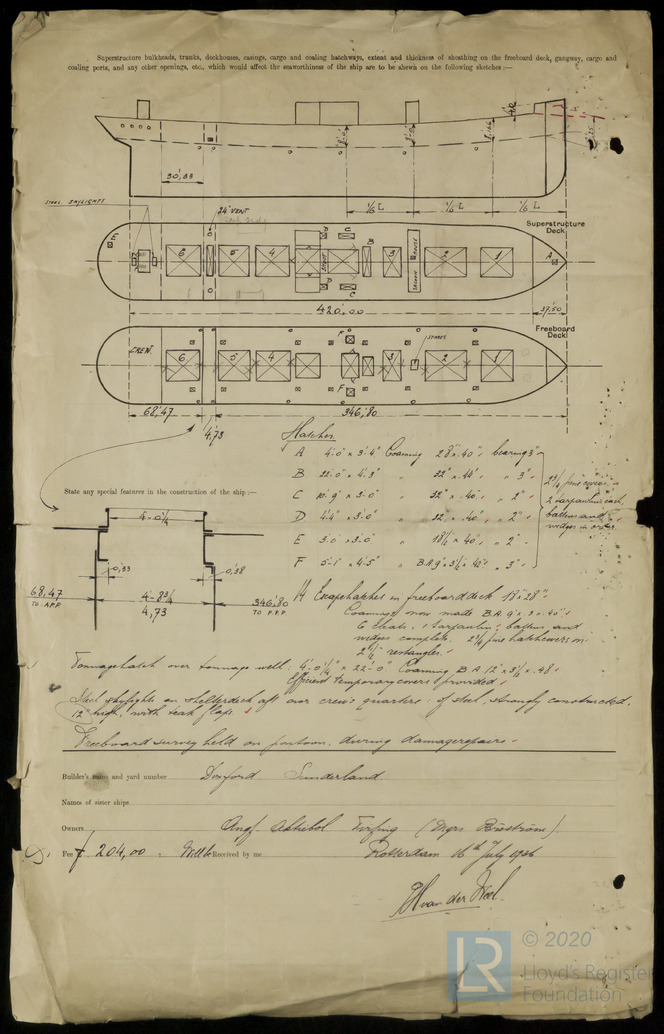 Superstructure bulkheads, trunks, deckhouses, casings, cargo and coaling hatchways, extent and thickness of sheathing on the freeboard deck, gangway, cargo and
coaling ports, and any other openings, etc., which would affect the seaworthiness of the ship are to be shewn on the following sketches :—
30,33
1/6 L 1/6 L 1/6 L
STEEL SKYLIGHTS
24" VENT
Superstructure
Deck
E 6 5 4 3 2 1 A
B C D
420,00
37,50
Freeboard
Deck
STORES
CREW.
6 5 4 F F 3 2 1
68,47
4,73
346,80
Hatches
A 4'.0" x 3'.4" Coaming 28" x .40", bearing 3"
B 22'.0" x 4'.3" " 22" x .44", " 3"
C 10'.9" x 3'.0" " 22" x .40", " 2"
D 4'.4" x 3'.0" " 22" x .40", " 2"
E 3'.0" x 3'.0" " 18½ x .40", " 2"
F 5'-1" x 4'.5" B.A. 9" x 3½ x .42", " 3"
2¾ pine covers
2 tarpaulins each,
battens and
wedges in order
State any special features in the construction of the ship :—
4-0¼
0,33
0,38
68,47
TO A.P.P.
4-8¾
4,73
346,80
TO F.P.P.
H Escape hatches in freeboard deck 18" x 28"
Coamings now made B.A. 9" x 3 x .40"
6 cleats, 1 tarpaulin, battens and
wedges complete. 2¾ pine hatchcovers on
2½" restangles.
Tonnagehatch over tonnage well: 4'-0¼" x 22'-0" Coaming B.A. 12" x 3½ x .48
Efficient temporary covers provided
Steel skylights on shelterdeck aft over crew's quarters: of steel, strongly constructed,
12" high, with teak flaps.
Freeboard survey held on pontoon, during damage repairs.
Builder's name and yard number Doxford Sunderland
Names of sister ships
Owners Angf. Aktiebol Tirfing (Mgrs Broström)
Fee £ 204,00 Will be Received by me Rotterdam 16th July 1936
van der
LR
© 2020
Lloyd's Register
Foundation